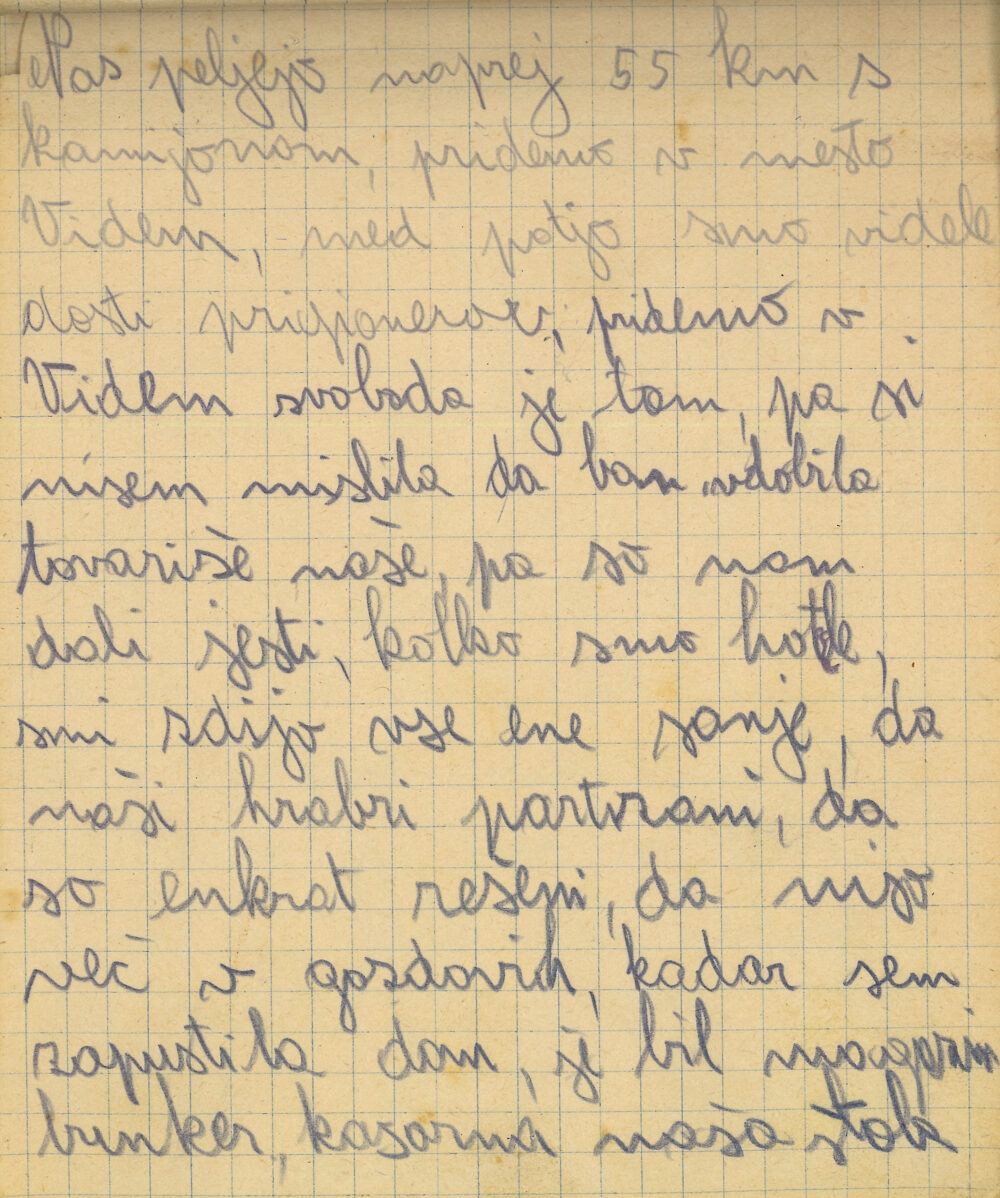 Nas peljejo naprej 55 km s
kamijonam, pridemo v mesto
Videm, med potjo smo videle
dosti prigionerov, pridemo v
Videm svoboda je tam, pa si
nisem mislila da bam vdobila
tovariše naše, pa so nam
dali jesti, kolko smo hotle,
smi zdijo vse ene sanje, da
naši hrabri partizani, da
so enkrat rešeni, da nijso
več v gozdovih, kadar sem
zapustila dam, je bil magazin
bunker, kasarna naša štala